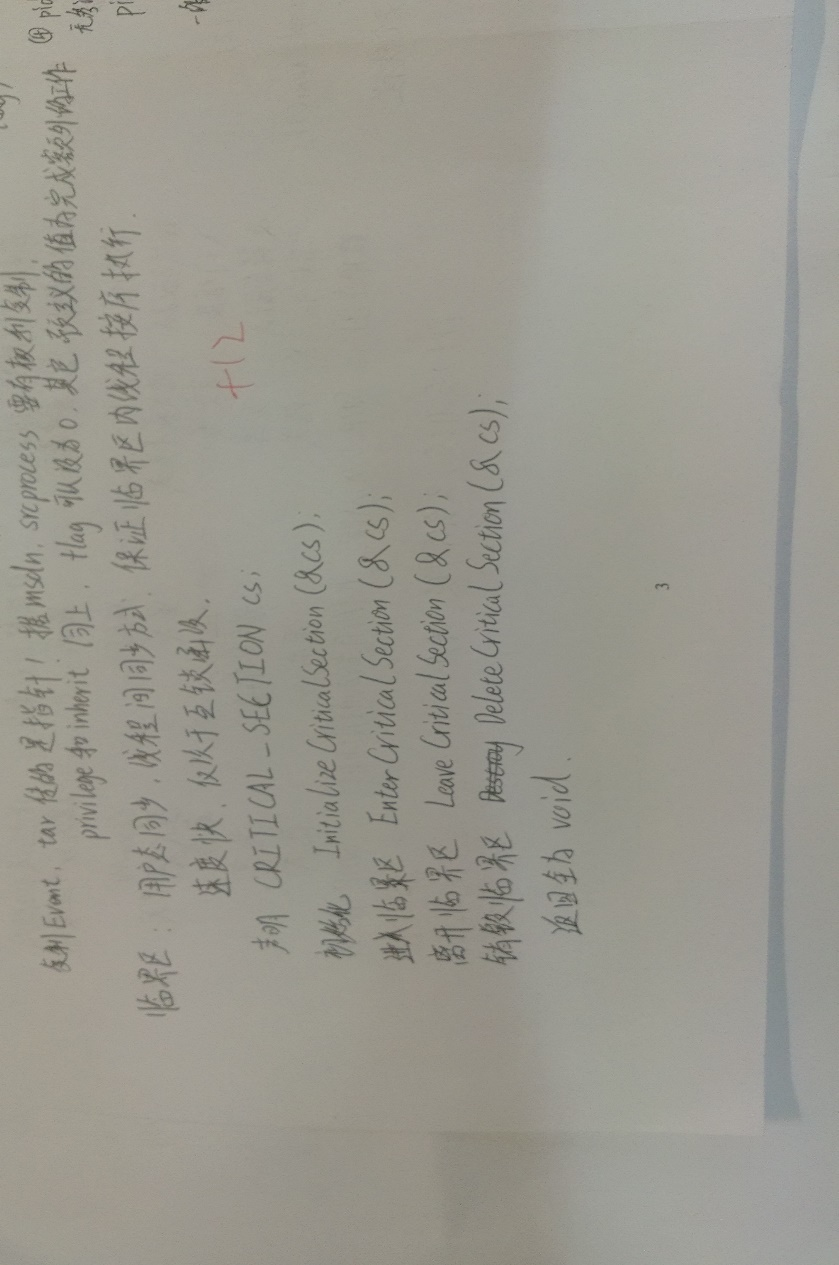 复制Event, tar 传的是指针! 据msdn, srcprocess 要有权利复制.
privilege和inherit 同上, flag 可以设为0, 其它 的值为完成额外的工作
临界区: 用户态同步, 线程间同步方式, 保证临界区内线程按序执行.
速度快, 仅次于互锁函数.
+12
声明 CRITICAL_SECTION cs;
初始化 InitializeCriticalSection(&cs);
进入临界区 EnterCriticalSection(&cs);
离开临界区 LeaveCriticalSection(&cs);
销毁临界区 Destroy DeleteCriticalSection(&cs);
返回全为 void.
3
④ pid